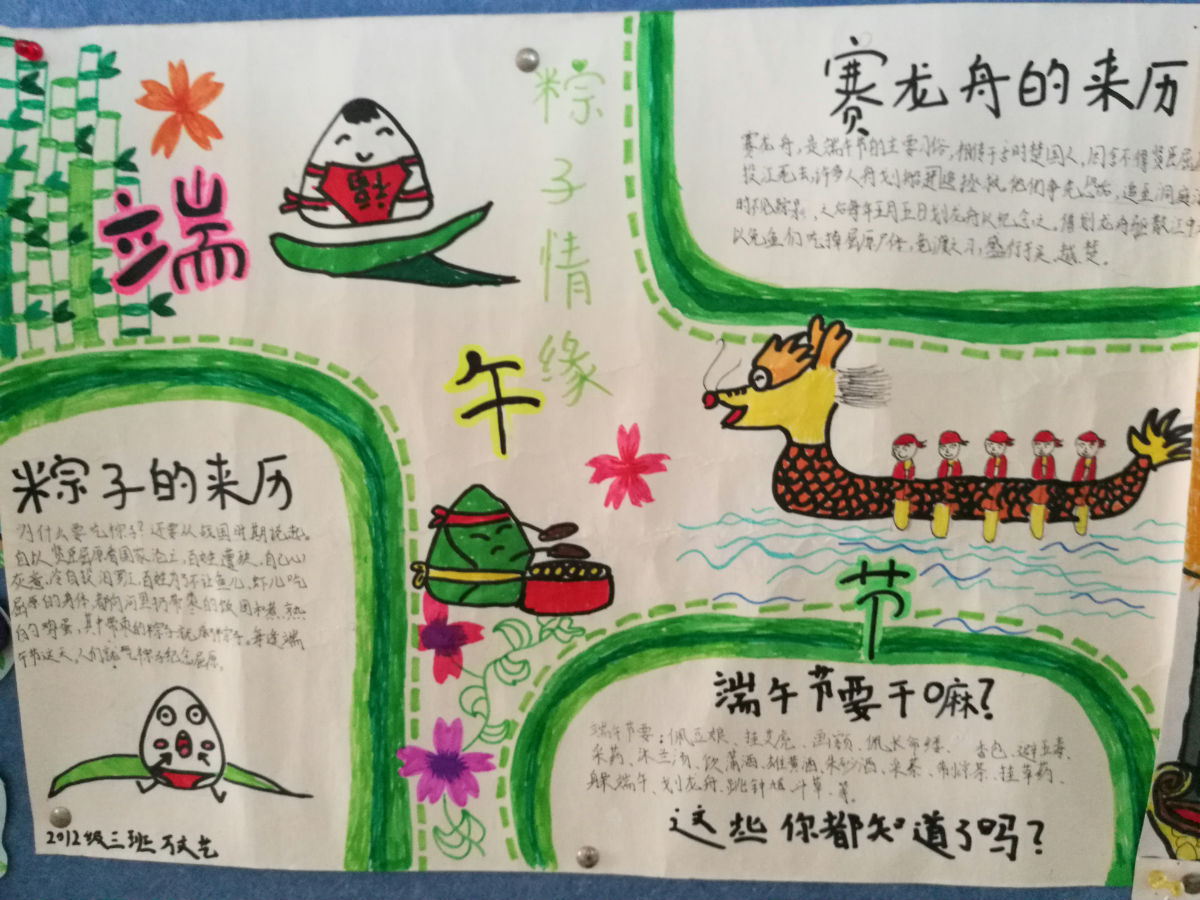 端
午
节
粽子情缘
赛龙舟的来历
赛龙舟,是端午节的主要习俗,相传于古时楚国人,因舍不得贤臣屈
投江死去,许多人舟划船追赶拯救,他们争先恐后,追至洞庭
时不见踪迹,之后每年五月五日划龙舟以纪念之,借划龙舟驱散江中
以免鱼们吃掉屈原尸体,竞渡之习,盛行于吴、越、楚。
粽子的来历
为什么要吃粽子?还要从战国时期说起。
自从贤臣屈原看国家沦亡,百姓遭殃,自己心
灰意冷自投汨罗江,百姓为了不让鱼儿、虾儿吃
屈原的身体,都向河里扔带枣的饭团和煮熟
的鸡蛋,其中带枣的粽子就粽子。每逢端
午节这天,人们吃粽子纪念屈原。
2012级三班 万文艺
端午节要干嘛?
端午节要:佩豆娘、挂艾虎、画额、佩长命缕、香包、避五毒、
采药、沐兰汤、饮菖酒、雄黄酒、朱砂酒、采茶、制凉茶、挂草药、
躲端午、划龙舟、跳钟馗、斗草、等。
这些你都知道了吗?